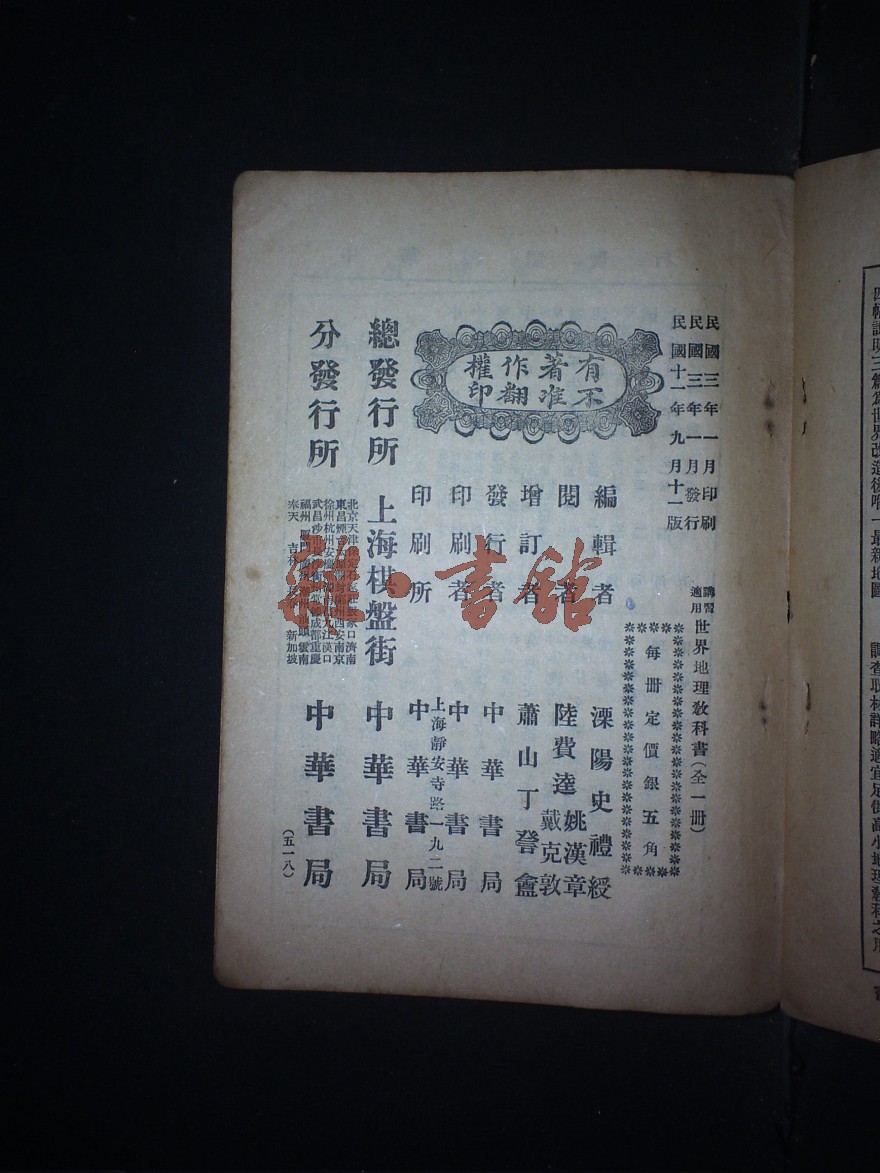 民國三年一月印刷
民國三年一月發行
民國十一年九月十一版
講習適用 世界地理教科書（全一冊）
每冊定價銀五角
有著作權
不准翻印
編輯者 溧陽史禮綬
閱者 陸費逵 姚漢章 戴克敦
增訂者 蕭山丁詧盦
發行者 中華書局
印刷者 中華書局
印刷所 上海靜安寺路一九二號 中華書局
總發行所 上海棋盤街 中華書局
分發行所 中華書局
北京天津
家口濟南
東昌
西安南京
徐州杭州安
九江漢口
武昌沙
成都重慶
福州
雲南
奉天 吉林
新加坡
（五一八）
雜·書館
四幅說明三篇爲世界改造後唯一最新地圖
調查取材詳略適宜足供高小地理教科之用